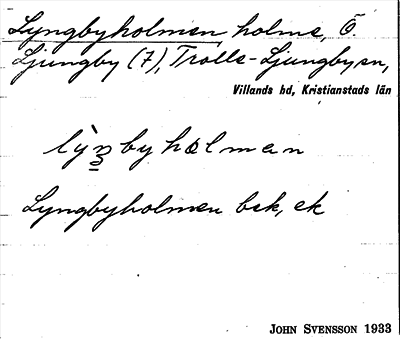 Lyngbyholmen holme, Ö.
Ljungby (7), Trolle-Ljungby sn,
Villands hd, Kristianstads län
lỳŋbyhɷlmən
Lyngbyholmen bek, ek
JOHN SVENSSON 1933